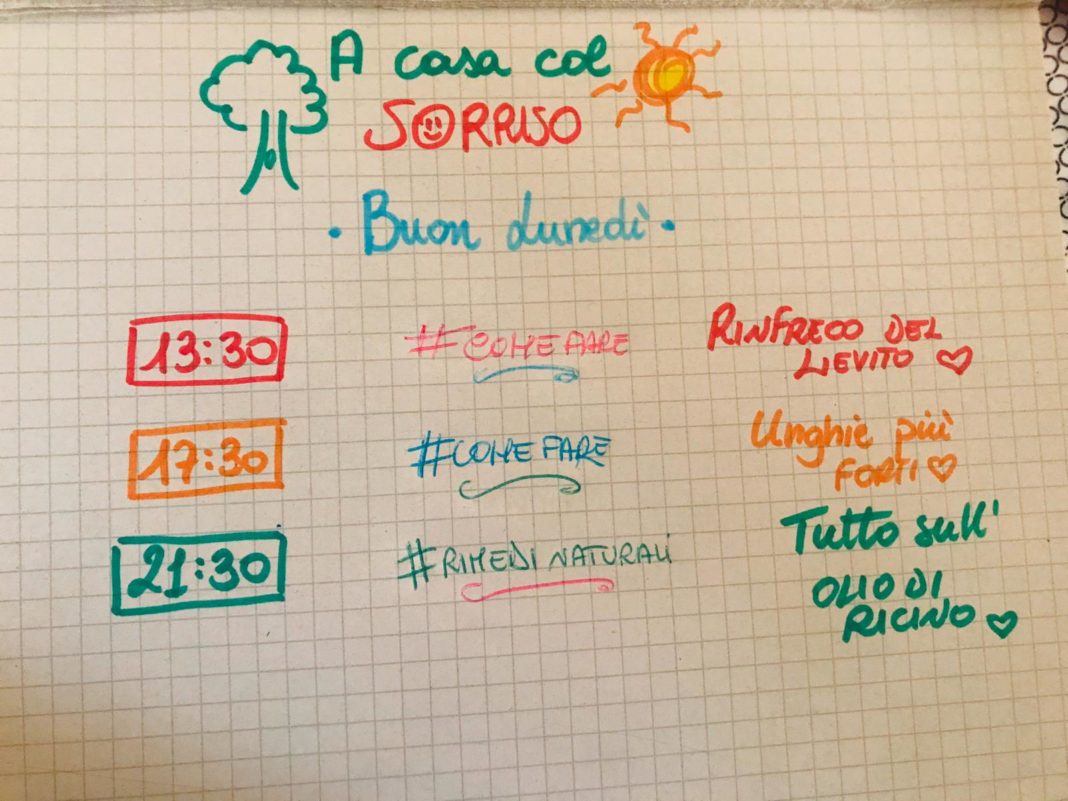 A casa col
SORRISO
· Buon Lunedì ·
13:30 #COMEFARE RINFRESCO DEL
LIEVITO ♡
17:30 #COMEFARE Unghie più
FORTI ♡
21:30 #RIMEDI NATURALI Tutto sull'
OLIO DI
RICINO ♡